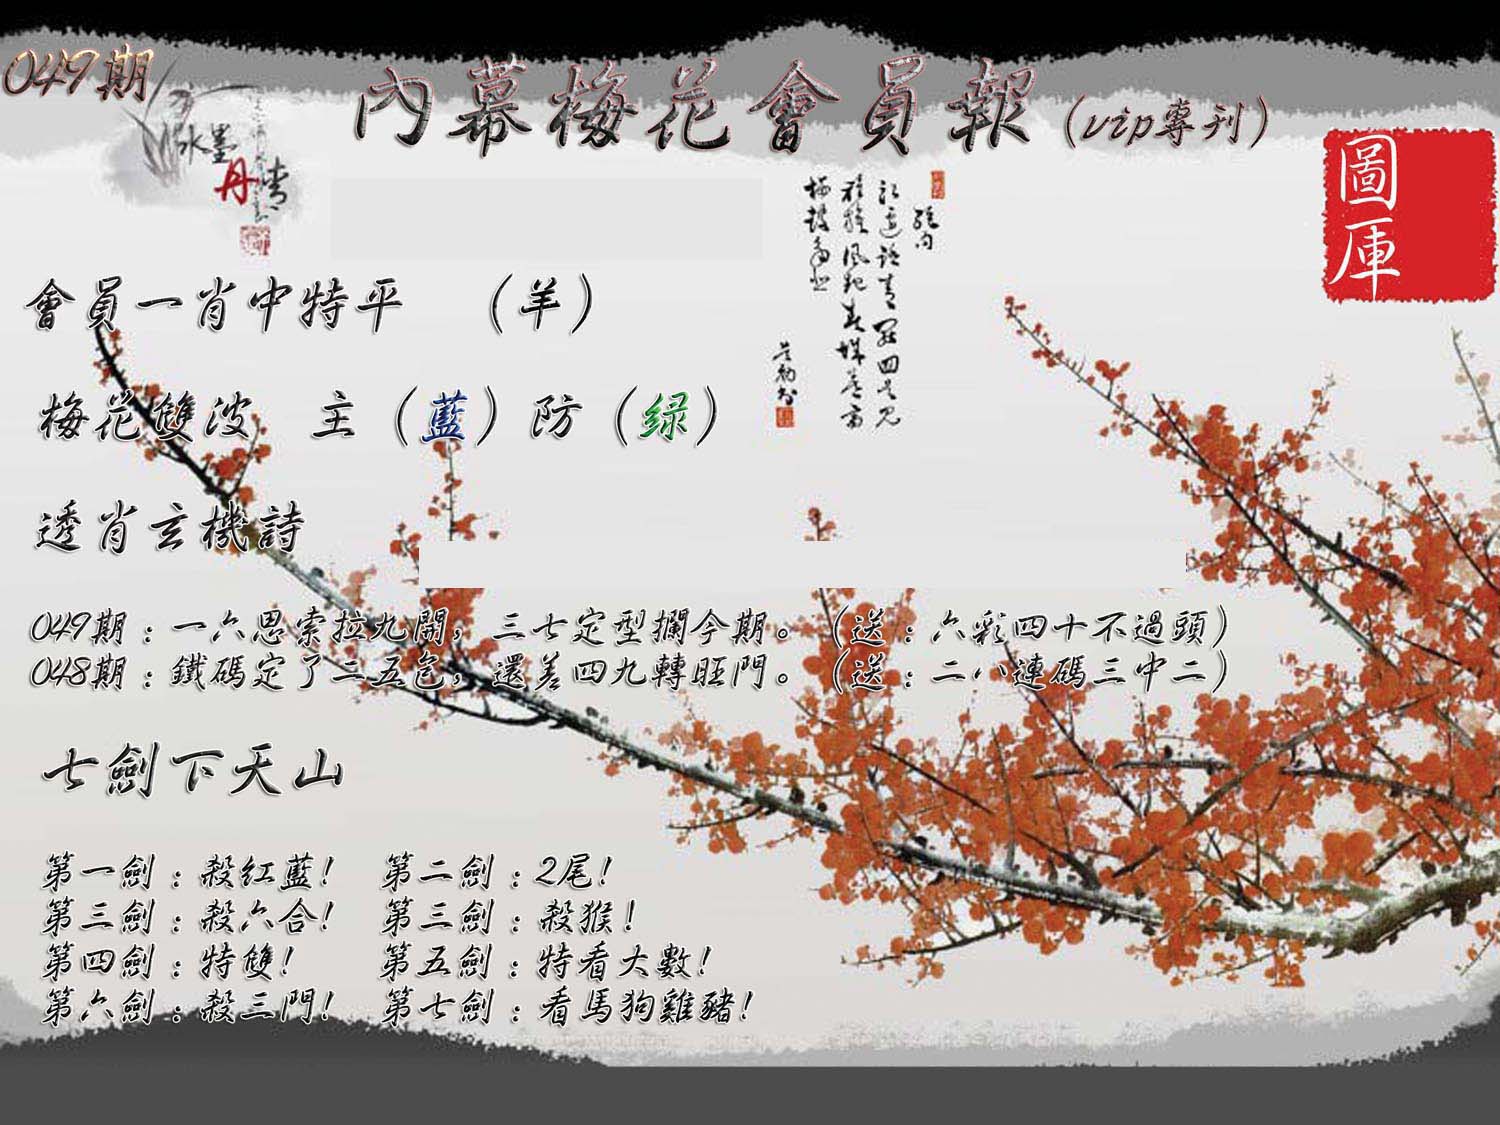 049期
內幕梅花會員報(vip專刊)
水墨
丹青
圖庫
會員一肖中特平 (羊)
梅花雙波 主(藍)防(绿)
透肖玄機詩
049期:一六思索拉九開,三七定型攔今期。(送:六彩四十不過頭)
048期:鐵碼定了二五包,還差四九轉旺門。(送:二八連碼三中二)
七劍下天山
第一劍:殺红藍! 第二劍:2尾!
第三劍:殺六合! 第三劍:殺猴!
第四劍:特雙! 第五劍:特看大數!
第六劍:殺三門! 第七劍:看馬狗雞豬!